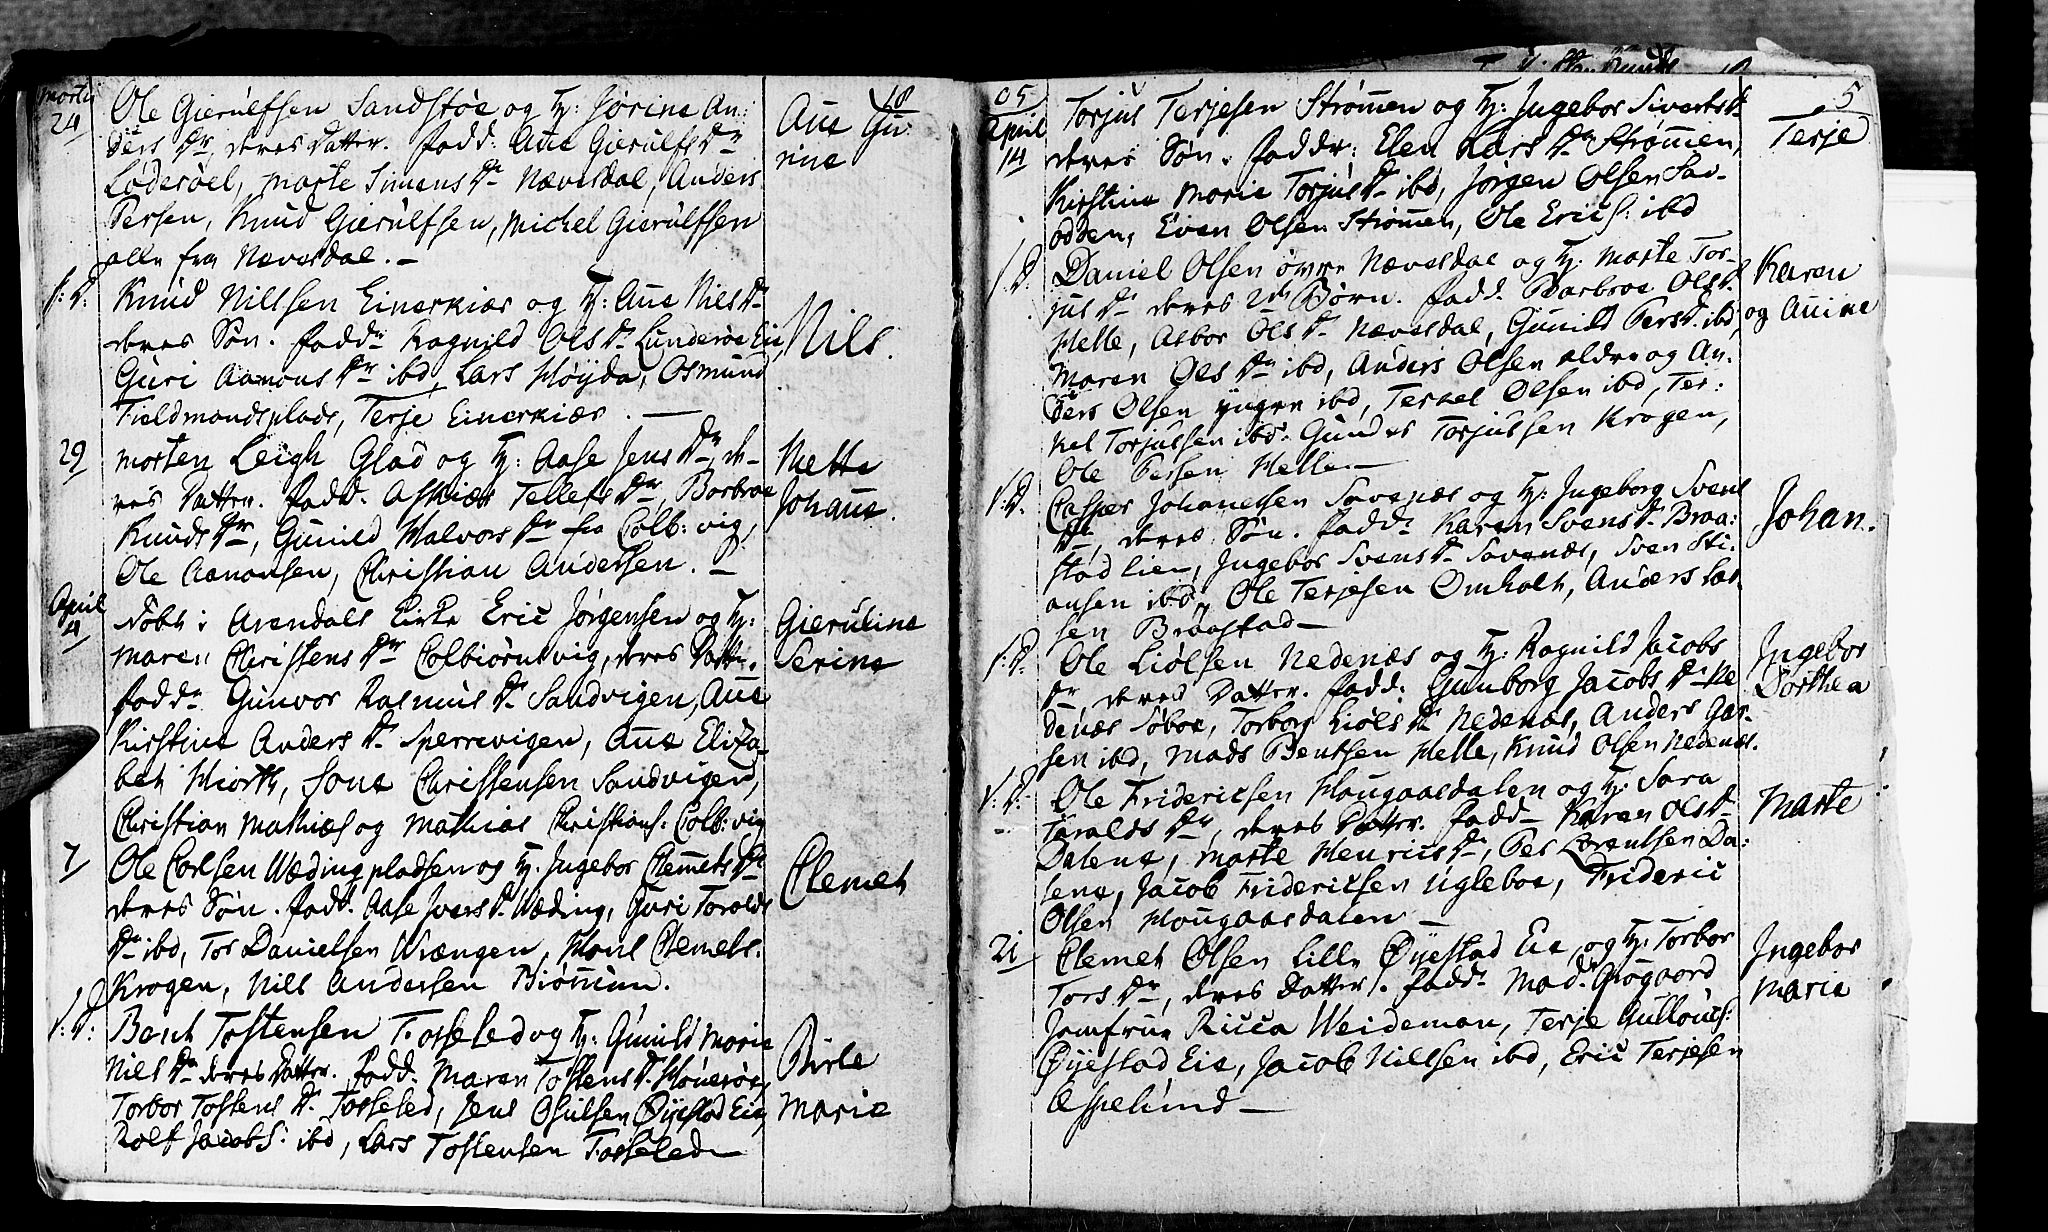 Marty
24
18
Ole Gierulfsen Sandstøe og H: Jørine An:
ders Dr, deres Datter. Fadd: Ane Gierulfs Dr
Løderöel, Marte Simens Dr Nævesdal, Anders
Persen, Knud Gierulfsen, Michel Gierulfsen
alle fra Nævesdal. —
Ane Gu:
rine
S: D:
Knud Nillsen Einerkiær og H: Ane Nils Dr
deres Søn. Fadd: Ragnild Ols Dr Lunderøe Eie,
Guri Aanons Dr ibd, Lars Høyda, Osmund
Fieldmandsplads, Terje Einerkiær. —
Nils.
29
Morten Leigh Glad og H: Aase Jens Dr, de-
res Datter. Fadd. Askiær Tellefs Dr, Barbroe
Knuds Dr, Gunild Halvors Dr fra Colb: vig,
Ole Aanonsen, Christian Andersen. —
Mette
Johane.
April
4
Døbt i Arendals Kirke Eric Jørgensen og H:
Maren Christens Dr Colbiørnsvig, deres Datter.
Fadd: Gunvor Rasmus Dr Sandvigen, Ane
Kirstine Anders Dr Sperrevigen, Ane Eliza-
bet Hiorth, Jens Christensen Sandvigen,
Christian Mathias og Mathias Christians: Colb: vig
Gieruline
Serine
7
Ole Carlsen Wædingpladsen og H. Ingebor Clemets Dr
deres Søn. Fadd. Aase Ivers Dr Wæding, Guri Toralds
Dr ibd, Tor Danielsen Wrængen, Houl Clemets.
Krogen, Nils Andersen Biönnum.
Clemet
S: D:
Bent Tostensen Fosseled og H: Gunild Marie
Niels Dr deres Datter. Fadd: Maren Tostens Dr Houerøe,
Torbor Tostens Dr. Fosseled, Jens Osulsen Øyestad Eie,
Rolf Jacobs: ibd, Lars Tostensen Fosseled
Birte
Marie
05
April
14
5
Torjus Terjesen Strømmen og H: Ingebor Siverts Dr
deres Søn. Faddr: Elen Lars Dr Strømmen,
Kirstine Marie Torjus Dr ibd, Jørgen Olsen Sav-
odden, Even Olsen Strømmen, Ole Erics: ibd
Terje
S: D:
Daniel Olsen øvre Nævesdal og H: Marte Tor-
jus Dr deres 2de Børn. Fadd. Barbroe Ols Dr
Helle, Asbor Ols Dr Nævesdal, Gunild Pers Dr ibd,
Maren Ols Dr ibd, Anders Olsen ældre og An-
ders Olsen yngre ibd, Terkel Olsen ibd, Ter:
kel Torjussen ibd. Gunder Torjussen Krogen,
Ole Persen Helle —
Karen
og Anine
S: D:
Casper Johannessen Savenæs og H: Ingeborg Svens
Dr, deres Søn. Fadd: Karen Svens Dr Braa:
stad lien, Ingebor Svens Dr Savenæs, Sven Sti-
ansen ibd, Ole Terjesen Omholt, Anders Lar-
sen Braastad —
Johan.
S: D:
Ole Liølsen Nedenæs og H: Ragnild Jacobs
Dr, deres Datter. Fadd: Gunborg Jacobs Dr Ne
denæs Søboe, Torborg Liøls Dr Nedenæs, Anders Lar-
sen ibd, Mads Bentsen Helle, Knud Olsen Nedenæs.
Ingebor
Dorthea
S: D:
Ole Fridericsen Hougaasdalen og H: Sara
Taralds Dr, deres Datter. Fadd: Karen Ols Dr
Dalene, Marte Henrics Dr, Per Lorentsen Da:
lene, Jacob Fridericsen Ugleboe, Frideric
Olsen Hougaasdalen —
Marte
21
Clemet Olsen Lille Øyestad Eie og H: Torbor
Tors Dr, deres Datter. Fadd: Mad: Grøgaard
Jomfrue Ricca Weideman, Terje Gullous:
Øyestad Eie, Jacob Nillsen ibd, Eric Terjesen
Espelund —
Ingebor
Marie